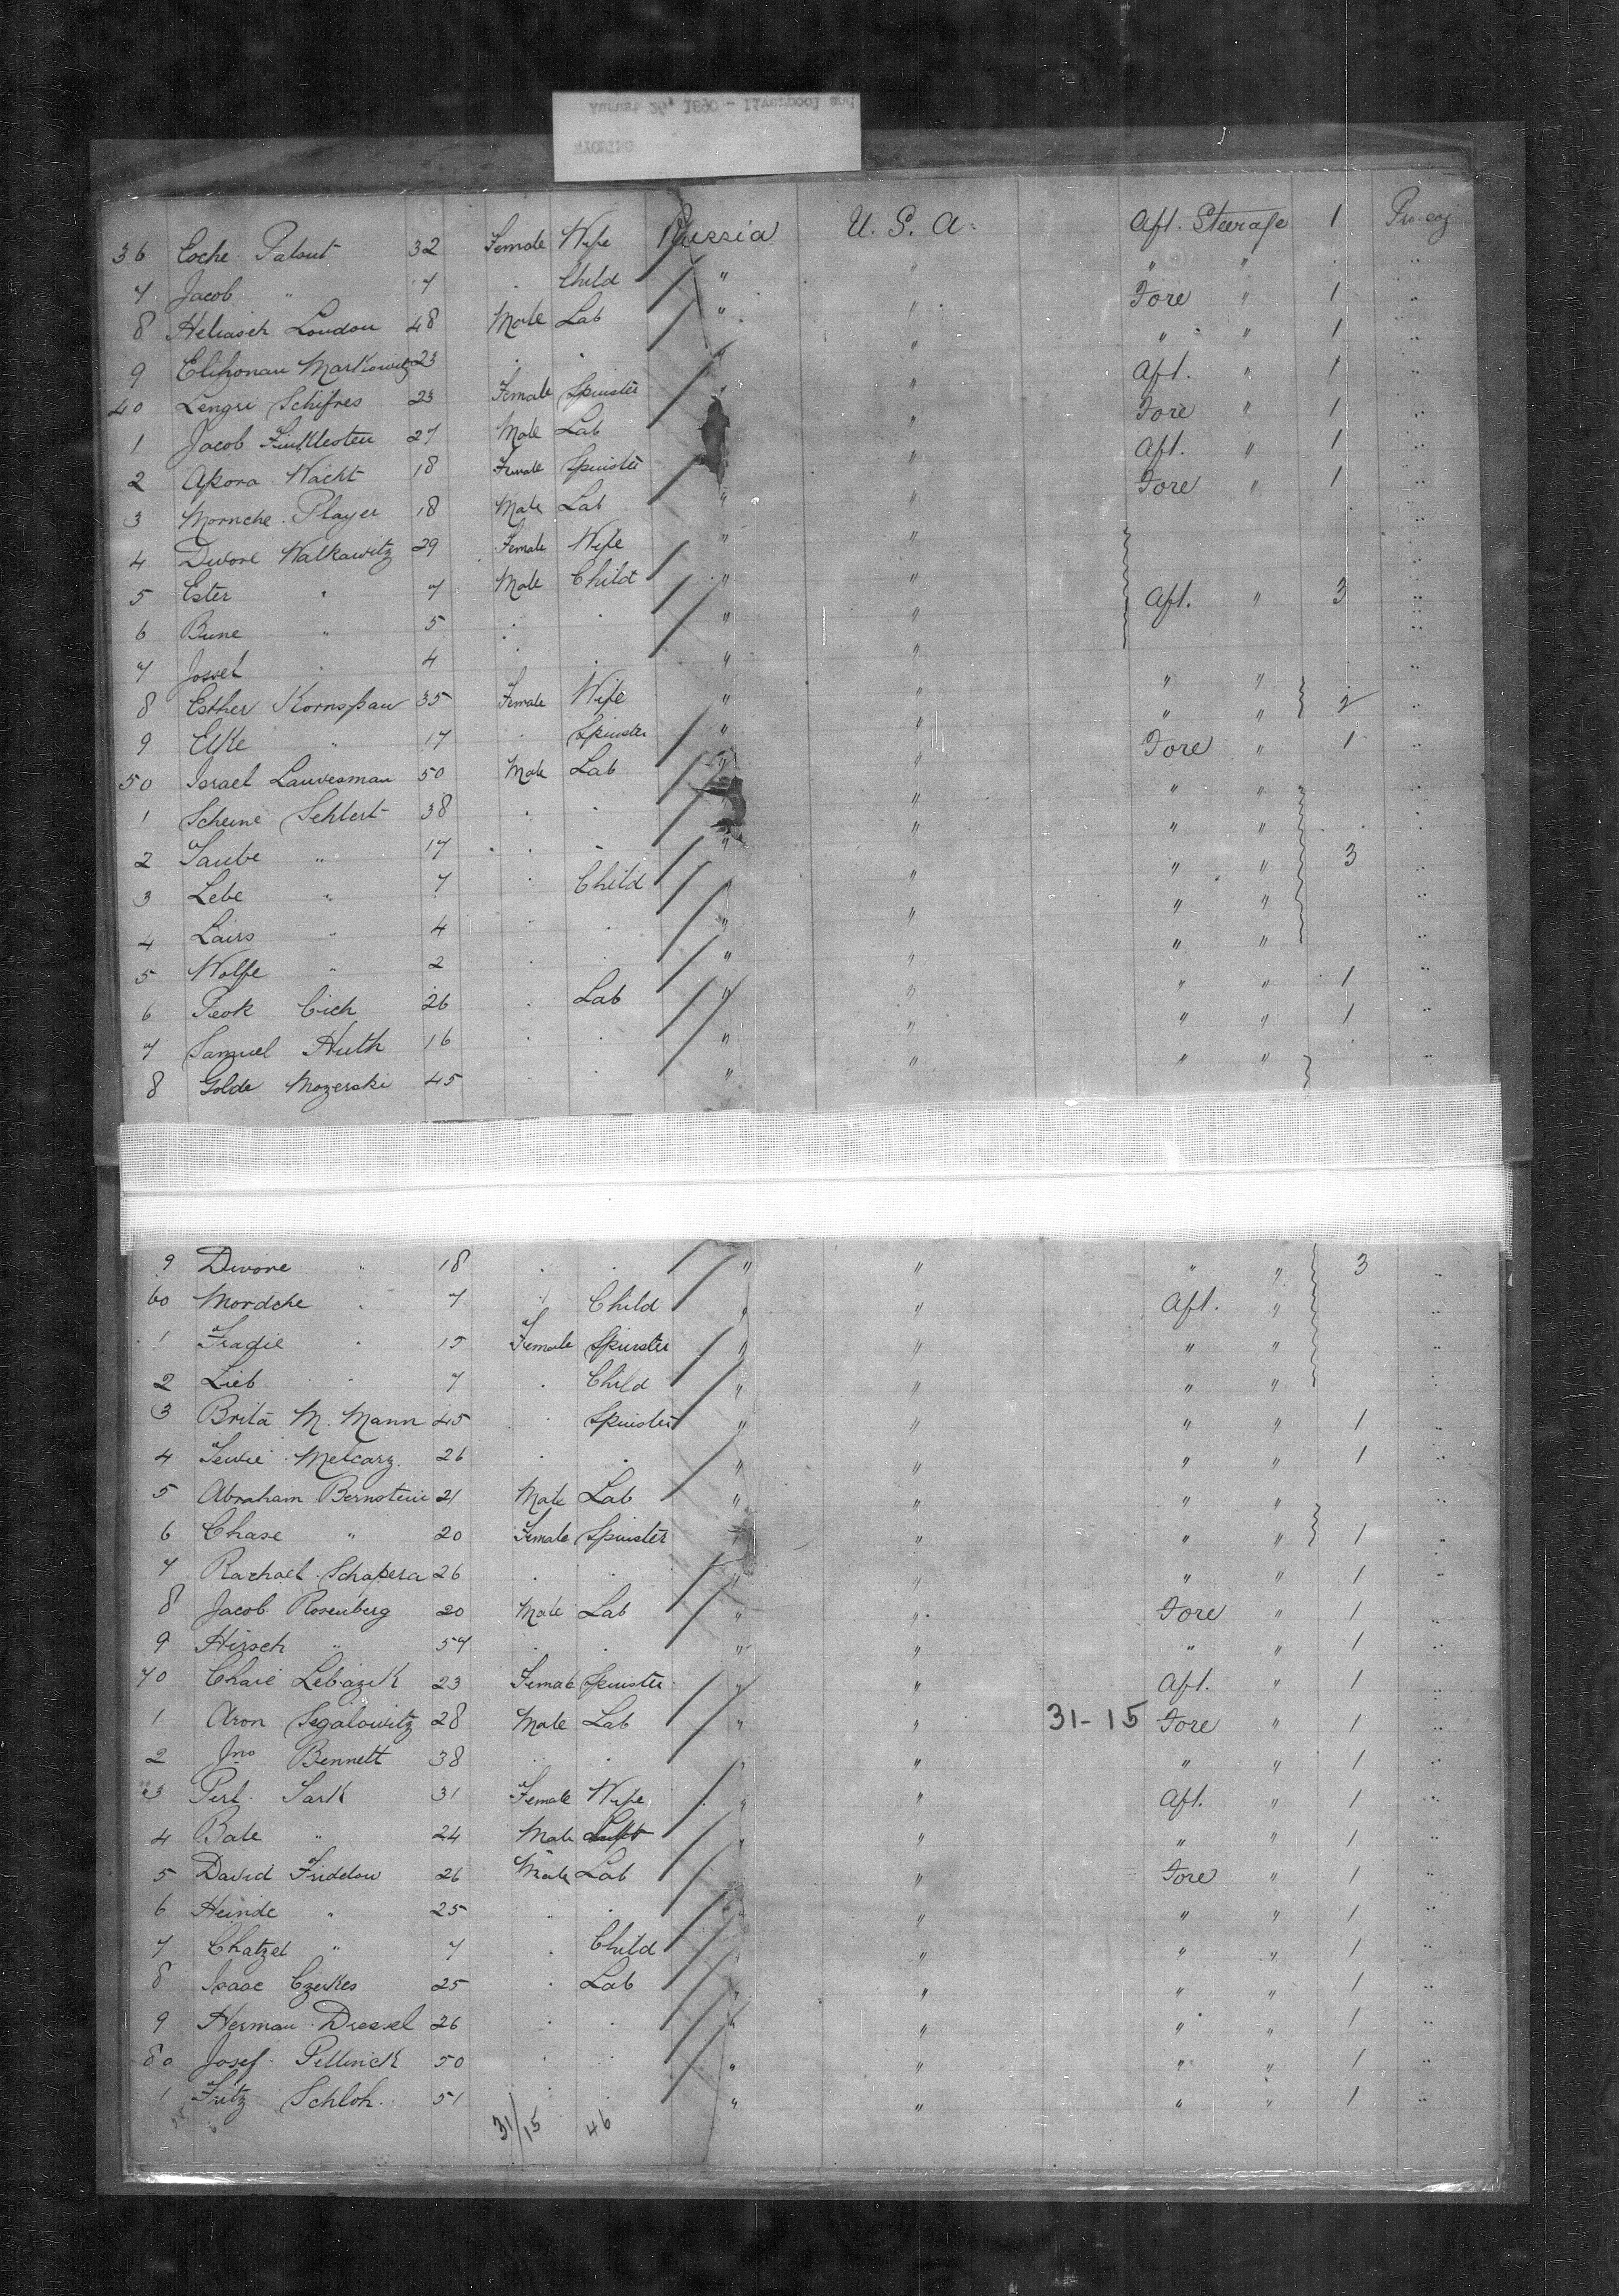 August 26, 1890 - Liverpool and
WYOMING
36 Coche Palout 32 Female Wife Russia U. S. A. Aft. Steerage 1 Pro. coy
7 Jacob " 7 . Child " " " "
8 Heliasch London 48 Male Lab " " Fore " 1 "
9 Elihonau Markowitz 23 . . " " " 1 "
40 Lengri Schifres 23 Female Spinster " Aft. " 1 "
1 Jacob Finklesten 27 Male Lab " Fore " 1 "
2 Apora Wacht 18 Female Spinster " Aft. " 1 "
3 Mornche Player 18 Male Lab " " Fore " 1 "
4 Dwore Walkawitz 29 Female Wife " " "
5 Ester " 7 Male Child " " Aft. " 3 "
6 Bune " 5 . . " " "
7 Jossel . 4 . . " " "
8 Esther Kornspan 35 Female Wife " " " " 2 "
9 Elke " 17 . Spinster " " " "
50 Israel Lauvesman 50 Male Lab " " Fore " 1 "
1 Scheine Sehlert 38 . . " " " "
2 Taube " 17 . . " " " " "
3 Lebe " 7 . Child " " " 3 "
4 Lairs " 4 . . " " " " "
5 Wolfe " 2 . . " " " " "
6 Peok Cich 26 . Lab " " " " 1 "
7 Samuel Huth 16 . . " " " " 1 "
8 Golde Mozerski 45 . . " " " " "
9 Dwore " 18 . . " " " " 3 "
60 Mordche . 7 " Child " " Aft. " "
1 Fradie . 15 Female Spinster " " " " "
2 Lieb . 7 . Child " " " " "
3 Brita M. Mann 45 . Spinster " " " " 1 "
4 Metcarz 26 . . " " " " 1 "
5 Abraham Bernstein 21 Male Lab " " " " "
6 Chase " 20 Female Spinster " " " 1 "
7 Rachael Schapera 26 . . " " " " 1 "
8 Jacob Rosenberg 20 Male Lab " " Fore " 1 "
9 Hirsch " 57 . . " " " " 1 "
70 Chaie Lebazik 23 Female Spinster " " Aft. " 1 "
1 Aron Segalowitz 28 Male Lab " " 31-15 Fore " 1 "
2 Jno Bennett 38 . . " " " " 1 "
3 Perl Sark 31 Female Wife " " Aft. " 1 "
4 Bale " 24 Male " " " " 1 "
5 David Friddow 26 Male Lab " Fore " 1 "
6 Heinde " 25 . . " " " " 1 "
7 Chatzel " 7 . Child " " " 1 "
8 Isaac Czerkes 25 . Lab " " " " 1 "
9 Herman Dressel 26 . . " " " " 1 "
80 Josef Pillinck 50 . . " " " " 1 "
1 Fritz Schloh 51 . . " " " " 1 "
31/15 46